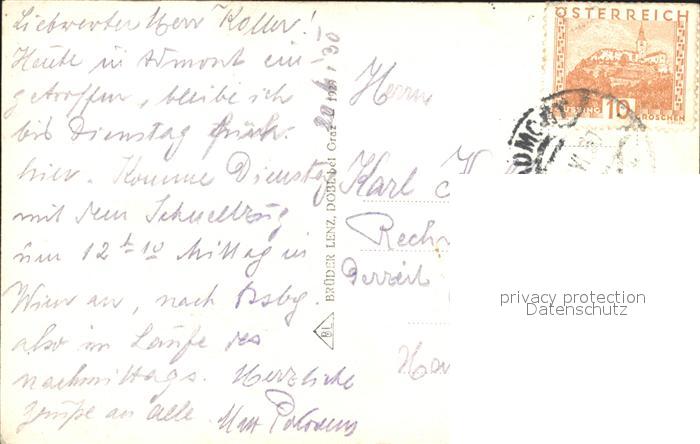 Liebwerter Herr Koller!
Heute in Admont ein
getroffen, bleibe ich
bis Dienstag früh
hier. Komme Dienstag
mit dem Schnellzug
um 12 h 10 Mittag in
Wien an, nach
also im Laufe des
nachmittags. Herzliche
Grüße an alle. Max
BL BRÜDER LENZ, DOBL bei Graz
ÖSTERREICH
10
GROSCHEN
ADMONT
Herrn
Karl
Rech
Derzeit
privacy protection
Datenschutz